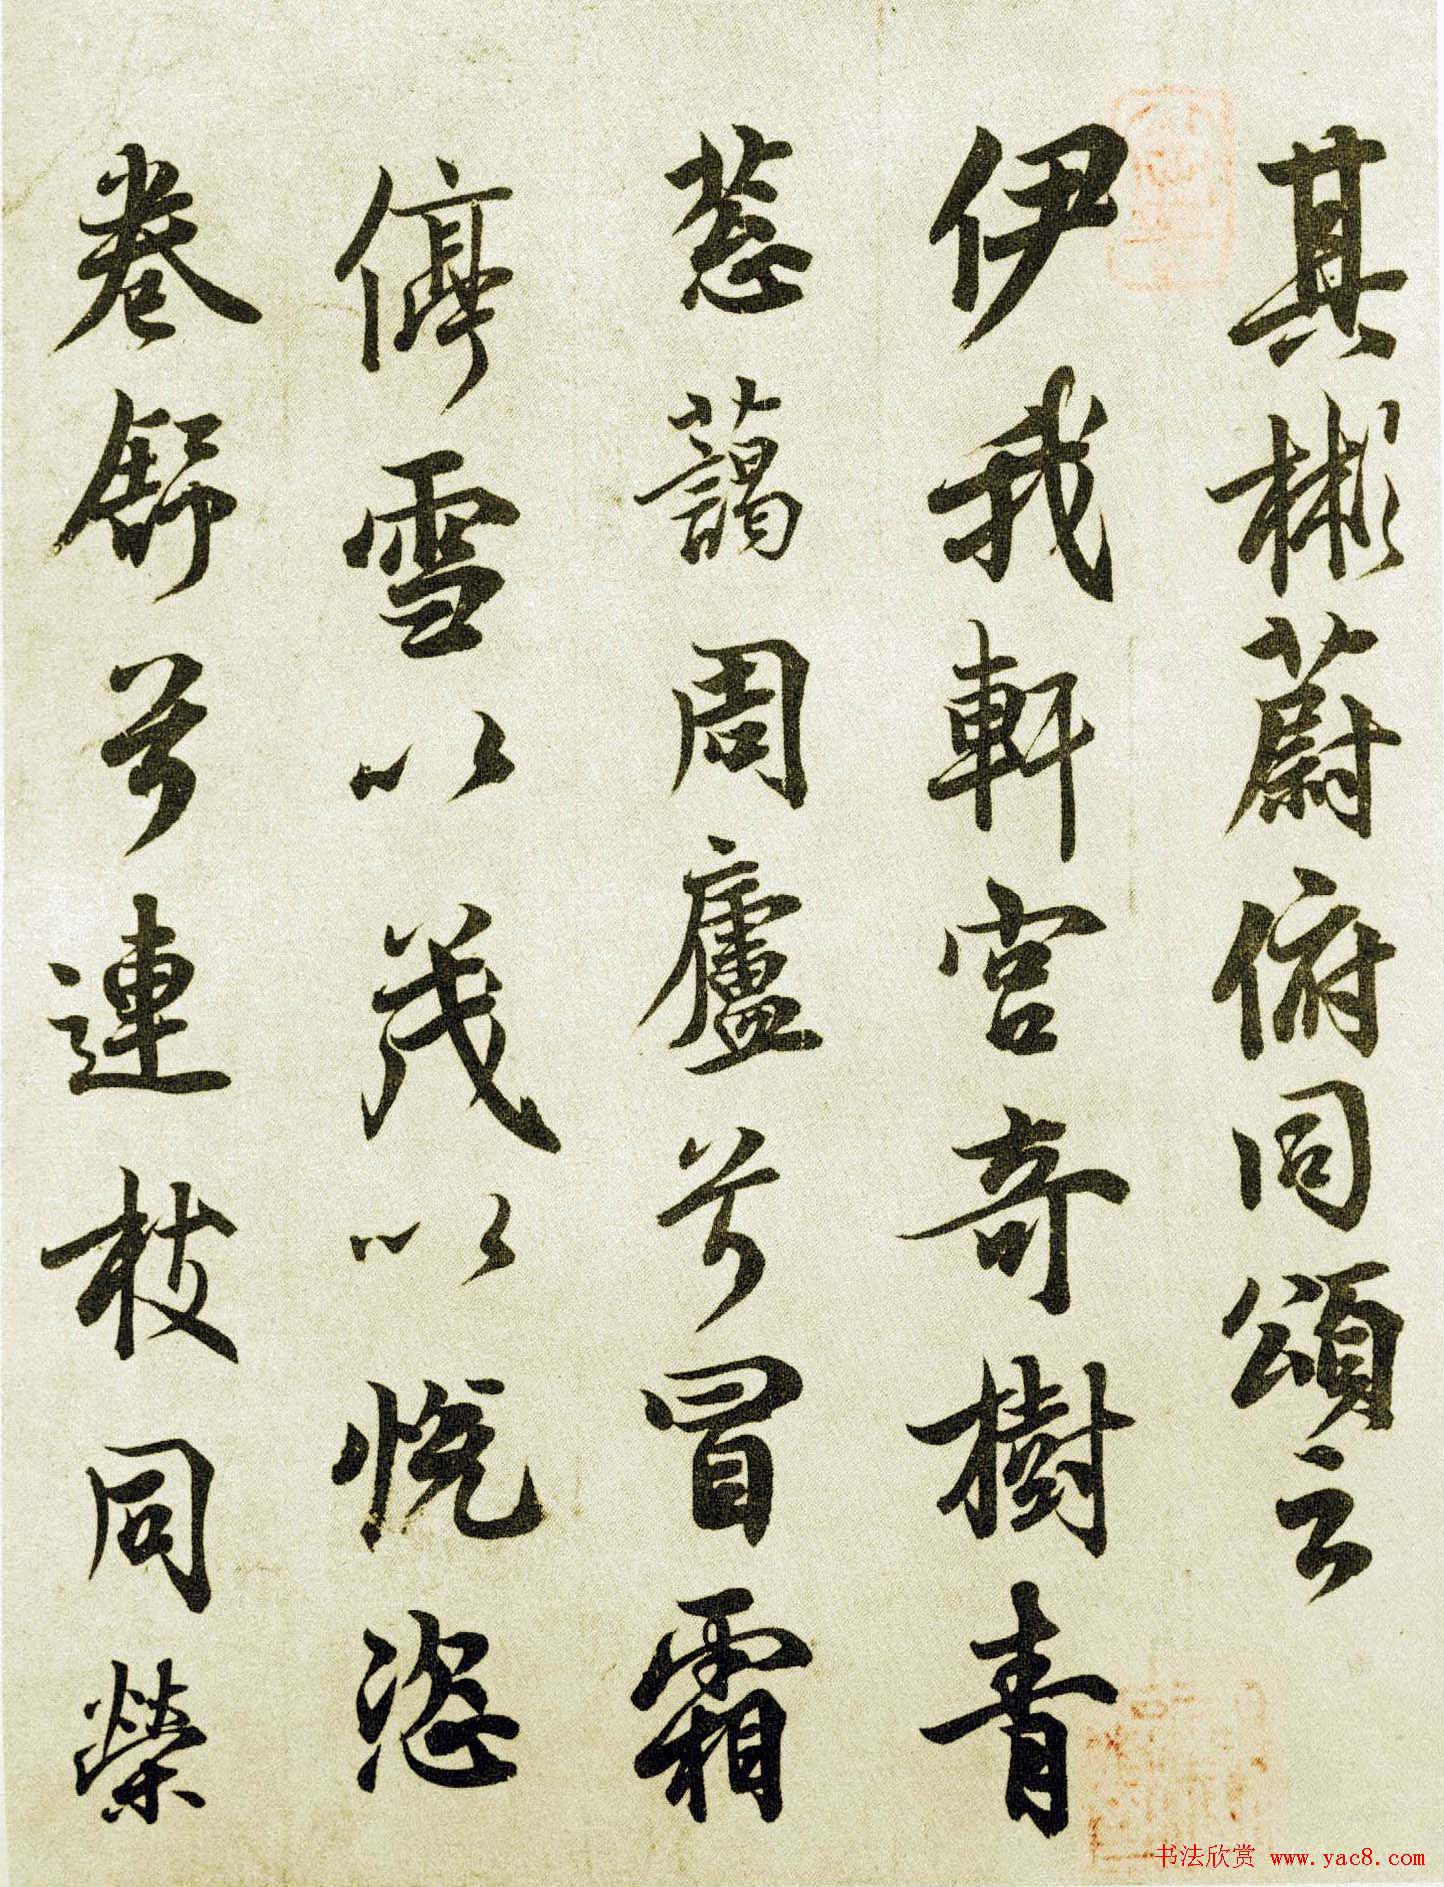 其彬蔚俯同頌云
伊我軒宮奇樹青
葱藹周廬兮冒霜
停雪以茂以悅恣
卷舒兮連枝同榮
书法欣赏 www.yac8.com